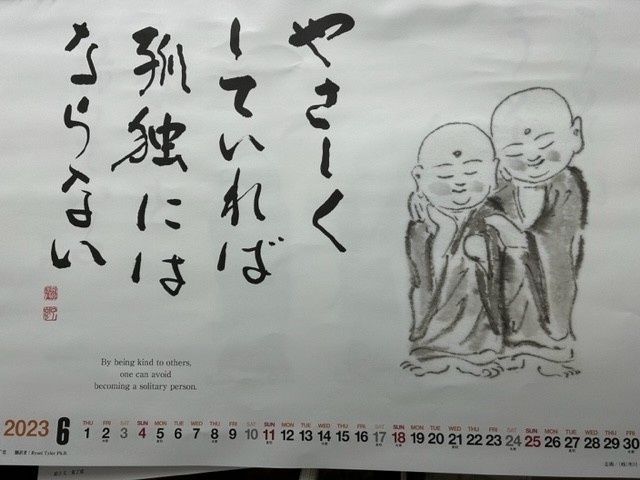 やさしく
していれば
孤独には
ならない
By being kind to others,
one can avoid
becoming a solitary person.
2023 6
THU FRI SAT SUN MON TUE WED THU FRI SAT SUN MON TUE WED THU FRI SAT SUN MON TUE WED THU FRI SAT SUN MON TUE WED THU FRI
1 2 3 4 5 6 7 8 9 10 11 12 13 14 15 16 17 18 19 20 21 22 23 24 25 26 27 28 29 30
Ryuei Tyler Ph.D.